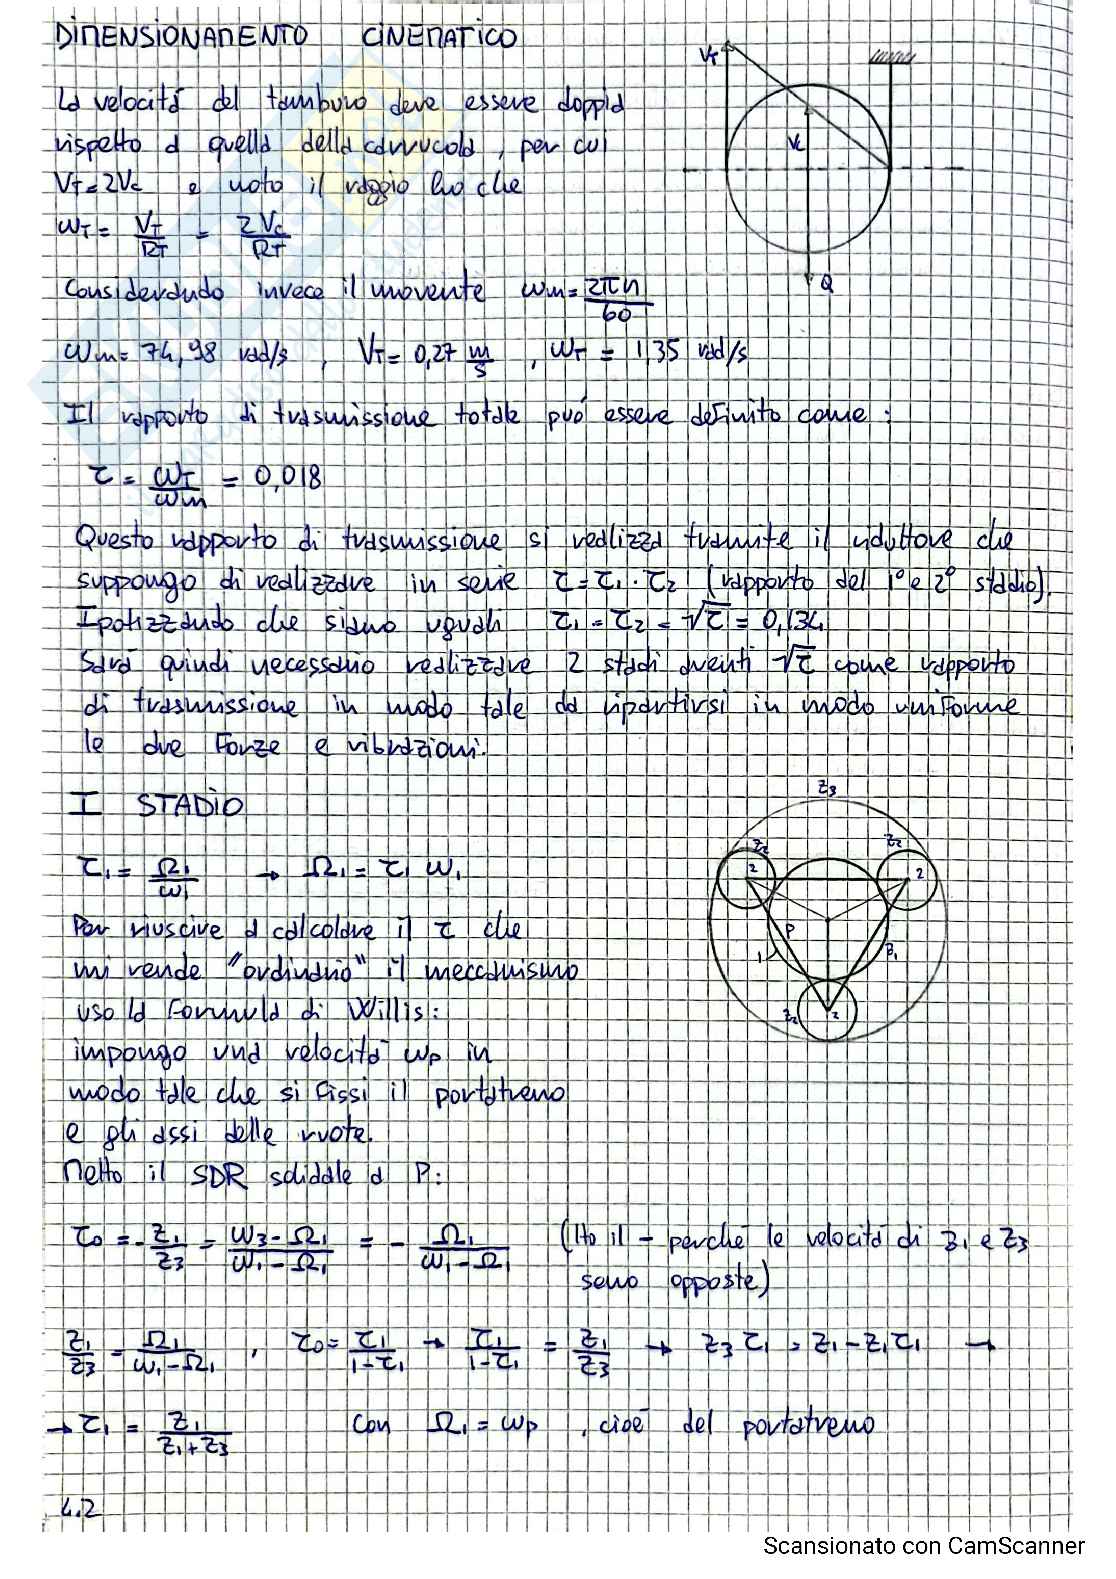 DIMENSIONAMENTO CINEMATICO
La velocità del tamburo deve essere doppia
rispetto a quella della carrucola, per cui
VT = 2Vc e noto il raggio ho che
ωT = VT/RT = 2Vc/RT
Considerando invece il movente ωm = 2πn/60
ωm = 74,98 rad/s , VT = 0,27 m/s , ωT = 1,35 rad/s
Il rapporto di trasmissione totale può essere definito come:
τ = ωT/ωm = 0,018
Questo rapporto di trasmissione si realizza tramite il riduttore che
suppongo di realizzare in serie τ = τ1 · τ2 (rapporto del 1° e 2° stadio).
Ipotizzando che siano uguali τ1 = τ2 = √τ = 0,134
Sarà quindi necessario realizzare 2 stadi aventi √τ come rapporto
di trasmissione in modo tale da ripartirsi in modo uniforme
le due forze e vibrazioni.
VT
Vc
Q
I STADIO
τ1 = Ω1/ω1 → Ω1 = τ1 ω1
Per riuscire a calcolare il τ che
mi rende "ordinario" il meccanismo
uso la formula di Willis:
impongo una velocità ωp in
modo tale che si fissi il portatreno
e gli assi delle ruote.
Metto il SDR solidale a P:
z3
z2
z2
2
2
P
1
z1
z2
2
τ0 = - z1/z3 = (ω3 - Ω1)/(ω1 - Ω1) = - Ω1/(ω1 - Ω1) (Ho il - perché le velocità di z1 e z3
sono opposte)
z1/z3 = Ω1/(ω1 - Ω1) , τ0 = τ1/(1 - τ1) → τ1/(1 - τ1) = z1/z3 → z3 τ1 = z1 - z1 τ1 →
→ τ1 = z1/(z1 + z3) con Ω1 = ωp , cioè del portatreno
4.2
Scansionato con CamScanner